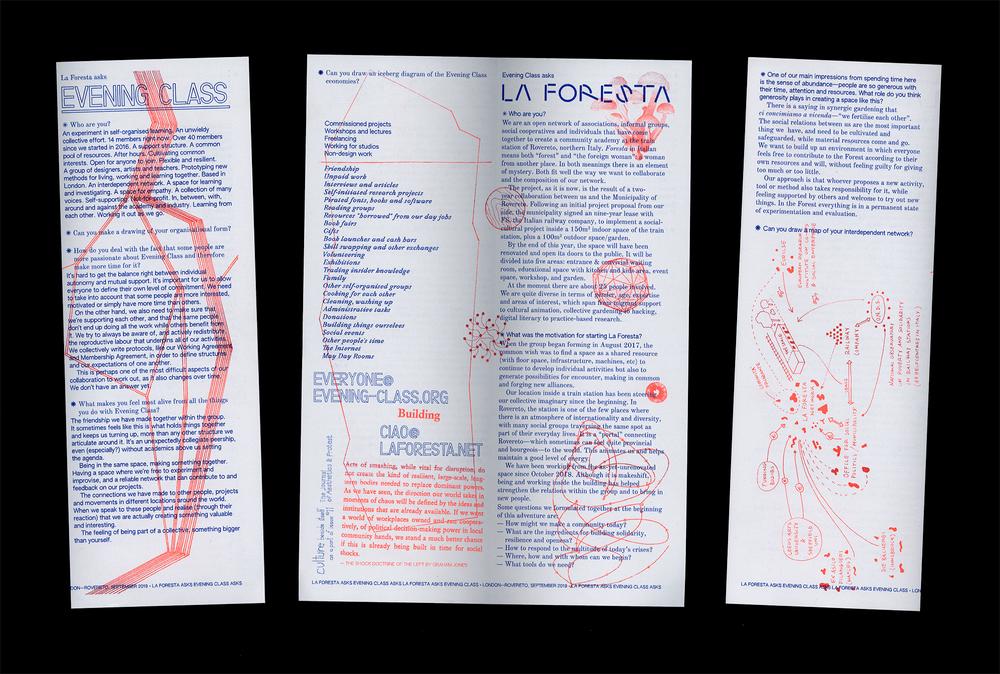 La Foresta asks
EVENING CLASS
✷ Who are you?
An experiment in self-organised learning. An unwieldy
collective effort. 14 members right now. Over 40 members
since we started in 2016. A support structure. A common
pool of resources. After hours. Cultivating common
interests. Open for anyone to join. Flexible and resilient.
A group of designers, artists and teachers. Prototyping new
methods for living, working and learning together. Based in
London. An interdependent network. A space for learning
and investigating. A space for empathy. A collection of many
voices. Self-supporting. In, between, with,
around and against the academy and industry. Learning from
each other. Working it out as we go.
✷ Can you make a drawing of your organisational form?
✷ How do you deal with the fact that some people are
more passionate about Evening Class and therefore
make more time for it?
It's hard to get the balance right between individual
autonomy and mutual support. It's important for us to allow
everyone to define their own level of commitment. We need
to take into account that some people are more interested,
motivated or simply have more time than others.
On the other hand, we also need to make sure that
we're supporting each other, and that the same people
don't end up doing all the work while others benefit from
it. We try to always be aware of, and actively redistribute
the reproductive labour that underlies all of our activities.
We collectively write protocols, like our Working Agreement
and Membership Agreement, in order to define structures
and our expectations of one another.
This is perhaps one of the most difficult aspects of our
collaboration to work out, as it also changes over time.
We don't have an answer yet.
✷ What makes you feel most alive from all the things
you do with Evening Class?
The friendship we have made together within the group.
It sometimes feels like this is what holds us together
and keeps us turning up, more than any other structure we
articulate around it. It's an unexpectedly collegiate
even (especially?) without academics above us setting
the agenda.
Being in the same space, making something together.
Having a space where we're free to experiment and
improvise, and a reliable network of peers for support and
feedback on our projects.
The connections we have made to other people, projects
and movements in different locations around the world.
When we speak to these people we realise (through their
reaction) that we are actually creating something valuable
and interesting.
The feeling of being part of a collective, something bigger
than yourself.
DON—ROVERETO, SEPTEMBER 2019 • LA FORESTA ASKS EVENING CLASS ASKS
✷ Can you draw an iceberg diagram of the Evening Class
economies?
Commissioned projects
Workshops and lectures
Freelancing
Working for studios
Non-design work
Friendship
Unpaid work
Interviews and articles
Self-initiated research projects
Pirated fonts, books and software
Reading groups
Resources "borrowed" from our day jobs
Book fairs
Gifts
Book launches and cash bars
Skill swapping and other exchanges
Volunteering
Exhibitions
Trading insider knowledge
Family
Other self-organised groups
Cooking for each other
Cleaning, washing up
Administrative tasks
Donations
Building ourselves
Social events
Other people's time
The Internet
May Day Rooms
EVERYONE@
EVENING-CLASS.ORG
Building
CIAO@
LAFORESTA.NET
Acts of smashing, while vital for disruption, do
not create the kind of resilient, large-scale, long-
term bodies needed to replace dominant powers.
As we have seen, the direction our world takes in
moments of chaos will be defined by the ideas and
institutions that are already available. If we want
a world of workplaces owned and run coopera-
tively, of political decision-making power in local
communities, we stand a much better chance
if this is already being built in time for social
shocks.
— THE SHOCK DOCTRINE OF THE LEFT BY GRAHAM JONES
culture beside itself
as a part of issue 11
The Journal
of Aesthetics & Protest
Evening Class asks
LA FORESTA
✷ Who are you?
We are an open network of associations, informal groups,
social cooperatives and individuals that have come
together to create a community academy in the train
station of Rovereto, northern Italy. Foresta in Italian
means both "forest" and "the foreign woman", a woman
from another place. In both meanings there is an element
of mystery. Both fit well the way we want to collaborate
and the composition of our network.
The project, as it is now, is the result of a two-
year collaboration between us and the Municipality of
Rovereto. Following an initial project proposal from our
side, the municipality signed an nine-year lease with
FS, the Italian railway company, to implement a social-
cultural project inside a 150m² indoor space of the train
station, plus a 100m² outdoor space/garden.
By the end of this year, the space will have been
renovated and open its doors to the public. It will be
divided into five areas: entrance & convivial waiting
room, educational space with kitchen and kids area, event
space, workshop, and garden.
At the moment there are about 25 people involved.
We are quite diverse in terms of gender, age, expertise
and areas of interest, which span from migrant support
to cultural animation, collective gardening to hacking,
digital literacy to practice-based research.
✷ What was the motivation for starting La Foresta?
When the group began forming in August 2017, the
common wish was to find a space as a shared resource
(with floor space, infrastructure, machines, etc) to
continue to develop individual activities but also to
generate possibilities for encounter, making in common
and forging new alliances.
Our location inside a train station has been steering
our collective imaginary since the beginning. In
Rovereto, the station is one of the few places where
there is an atmosphere of internationality and diversity,
with many social groups traversing the same spot as
part of their everyday lives. A "portal" connecting
Rovereto—which sometimes can feel quite provincial
and bourgeois—to the world. This animates us and helps
maintain a good level of energy.
We have been working from the as-yet-unrenovated
space since October 2018. Although it is makeshift,
being and working inside the building has helped
strengthen the relations within the group and to bring in
new people.
Some questions we formulated together at the beginning
of this adventure are:
— How might we make a community today?
— What are the ingredients for building solidarity,
resilience and openness?
— How to respond to the multitude of today's crises?
— Where, how and with whom can we begin?
— What tools do we need?
LA FORESTA ASKS EVENING CLASS ASKS LA FORESTA ASKS EVENING CLASS ASKS • LONDON—ROVERETO, SEPTEMBER 2019 • LA FORESTA ASKS EVENING CLASS ASKS
✷ One of our main impressions from spending time here
is the sense of abundance—people are so generous with
their time, attention and resources. What role do you think
generosity plays in creating a space like this?
There is a saying in synergic gardening that
ci concimiamo a vicenda—"we fertilise each other".
The social relations between us are the most important
thing we have, and need to be cultivated and
safeguarded, while material resources come and go.
We want to build up an environment in which everyone
feels free to contribute to the Forest according to their
own resources and will, without feeling guilty for giving
too much or too little.
Our approach is that whoever proposes a new activity,
tool or method also takes responsibility for it, while
feeling supported by others and welcome to try out new
things. In the Forest everything is in a permanent state
of experimentation and evaluation.
✷ Can you draw a map of your interdependent network?
RAILWAY
COMPANY
LA FORESTA
LA FORESTA ASKS EVENING CLASS ASKS LA FORESTA ASKS EVENING CLASS ASKS • LON